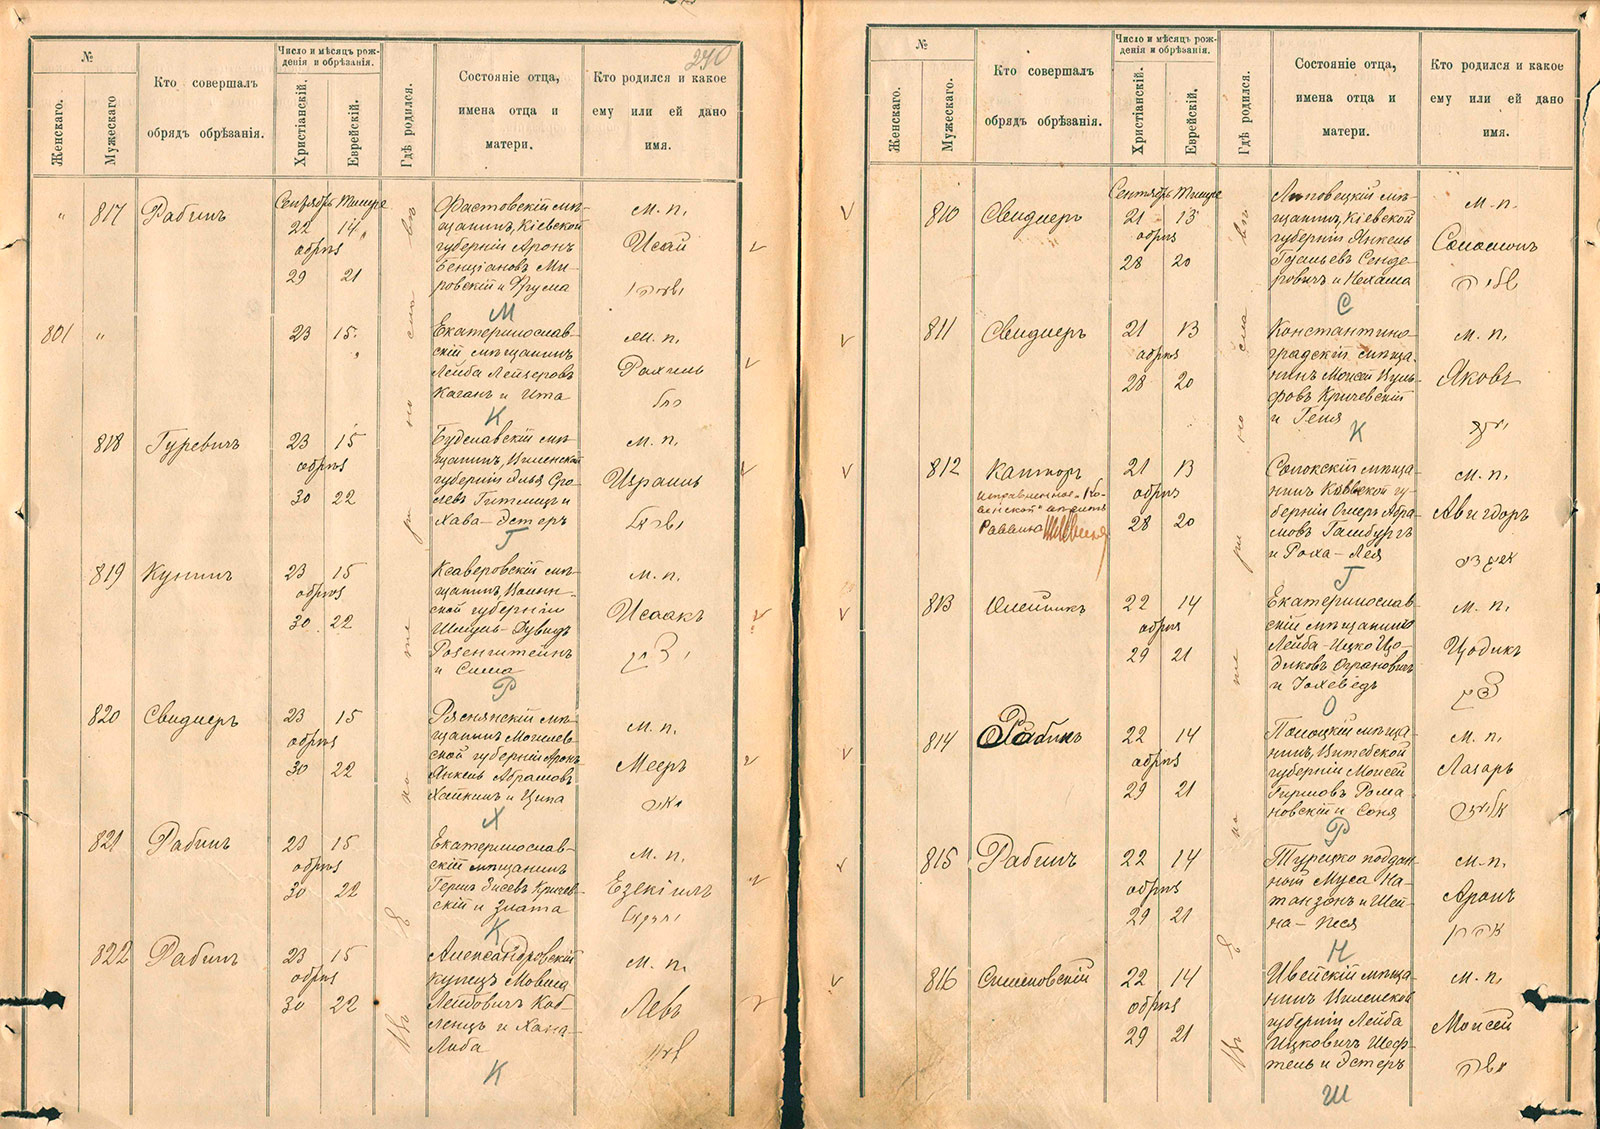 240
№
Женскаго.
Мужескаго
Кто совершалъ
обрядъ обрѣзанія.
Число и мѣсяцъ рож-
денія и обрѣзанія.
Христіанскій.
Еврейскій.
Гдѣ родился.
Состояніе отца,
имена отца и
матери.
Кто родился и какое
ему или ей дано
имя.
„ 817 Рабинъ
Сентябрь Тишре
22 14
обрѣз
29 21
Фастовскій мѣ-
щанинъ, Кіевской
губерніи Аронъ
Бенціановъ Ми-
ровскій и Фрума
М
м. п.
Исай
801 „
23 15
Екатеринослав-
скій мѣщанинъ
Лейба Лейзеровъ
Каганъ и Ита
К
м. п.
Рахиль
רחל
818 Гуревичъ
23 15
обрѣз
30 22
мѣ-
щанинъ, Виленской
губерніи
Хава-Эстеръ
Г
м. п.
Израиль
ישראל
819 Кунинъ
23 15
обрѣз
30 22
Ксаверовскій мѣ-
щанинъ, Волын-
ской губерніи
Розенштейнъ
и Сима
Р
м. п.
Исаакъ
820 Свидлеръ
23 15
обрѣз
30 22
Ряснянскій мѣ-
щанинъ Могилев-
ской губерніи Аронъ
Янкель Абрамовъ
Хайкинъ и Ципа
Х
м. п.
Мееръ
מאיר
821 Рабинъ
23 15
обрѣз
30 22
Екатеринослав-
скій мѣщанинъ
Гершъ Зисевъ Кричев-
скій и Злата
К
м. п.
Езекіиль
822 Рабинъ
23 15
обрѣз
30 22
Александровскій
купецъ Мовша
Лейбовичъ Коб-
ленцъ и Хана-
Либа
К
м. п.
Левъ
Въ Екатеринославѣ
№
Женскаго.
Мужескаго.
Кто совершалъ
обрядъ обрѣзанія.
Число и мѣсяцъ рож-
денія и обрѣзанія.
Христіанскій.
Еврейскій.
Гдѣ родился.
Состояніе отца,
имена отца и
матери.
Кто родился и какое
ему или ей дано
имя.
810 Свидлеръ
Сентябрь Тишре
21 13
обрѣз
28 20
Липовецкій мѣ-
щанинъ, Кіевской
губерніи Янкель
Сенде-
ровичъ и Нехама
С
м. п.
Соломонъ
811 Свидлеръ
21 13
обрѣз
28 20
Константино-
градскій мѣща-
нинъ Моисей Вуль-
фовъ Кричевскій
и Геня
К
м. п.
Яковъ
812 Канторъ
21 13
обрѣз
28 20
мѣща-
нинъ Ковенской гу-
берніи Абра-
мовъ Гамбургъ
и Роха-Лея
Г
м. п.
Авигдоръ
אביגדור
813 Олейникъ
22 14
обрѣз
29 21
Екатеринослав-
скій мѣщанинъ
Лейба-Ицко Цо-
диковъ Огранович
и Іохеведъ
О
м. п.
Цодикъ
צדיק
814 Рабинъ
22 14
обрѣз
29 21
Полоцкій мѣща-
нинъ, Витебской
губерніи Моисей
Рома-
новскій и Соня
Р
м. п.
Лазарь
אליעזר
815 Рабинъ
22 14
обрѣз
29 21
Турецко поддан-
ный Муса На-
танзонъ и Шей-
на-Песя
Н
м. п.
Аронъ
אהרן
816 Смиловскій
22 14
обрѣз
29 21
Ивейскій мѣща-
нинъ Виленской
губерніи Лейба
Ицковичъ Шеф-
тель и Эстеръ
Ш
м. п.
Моисей
משה
Въ Екатеринославѣ